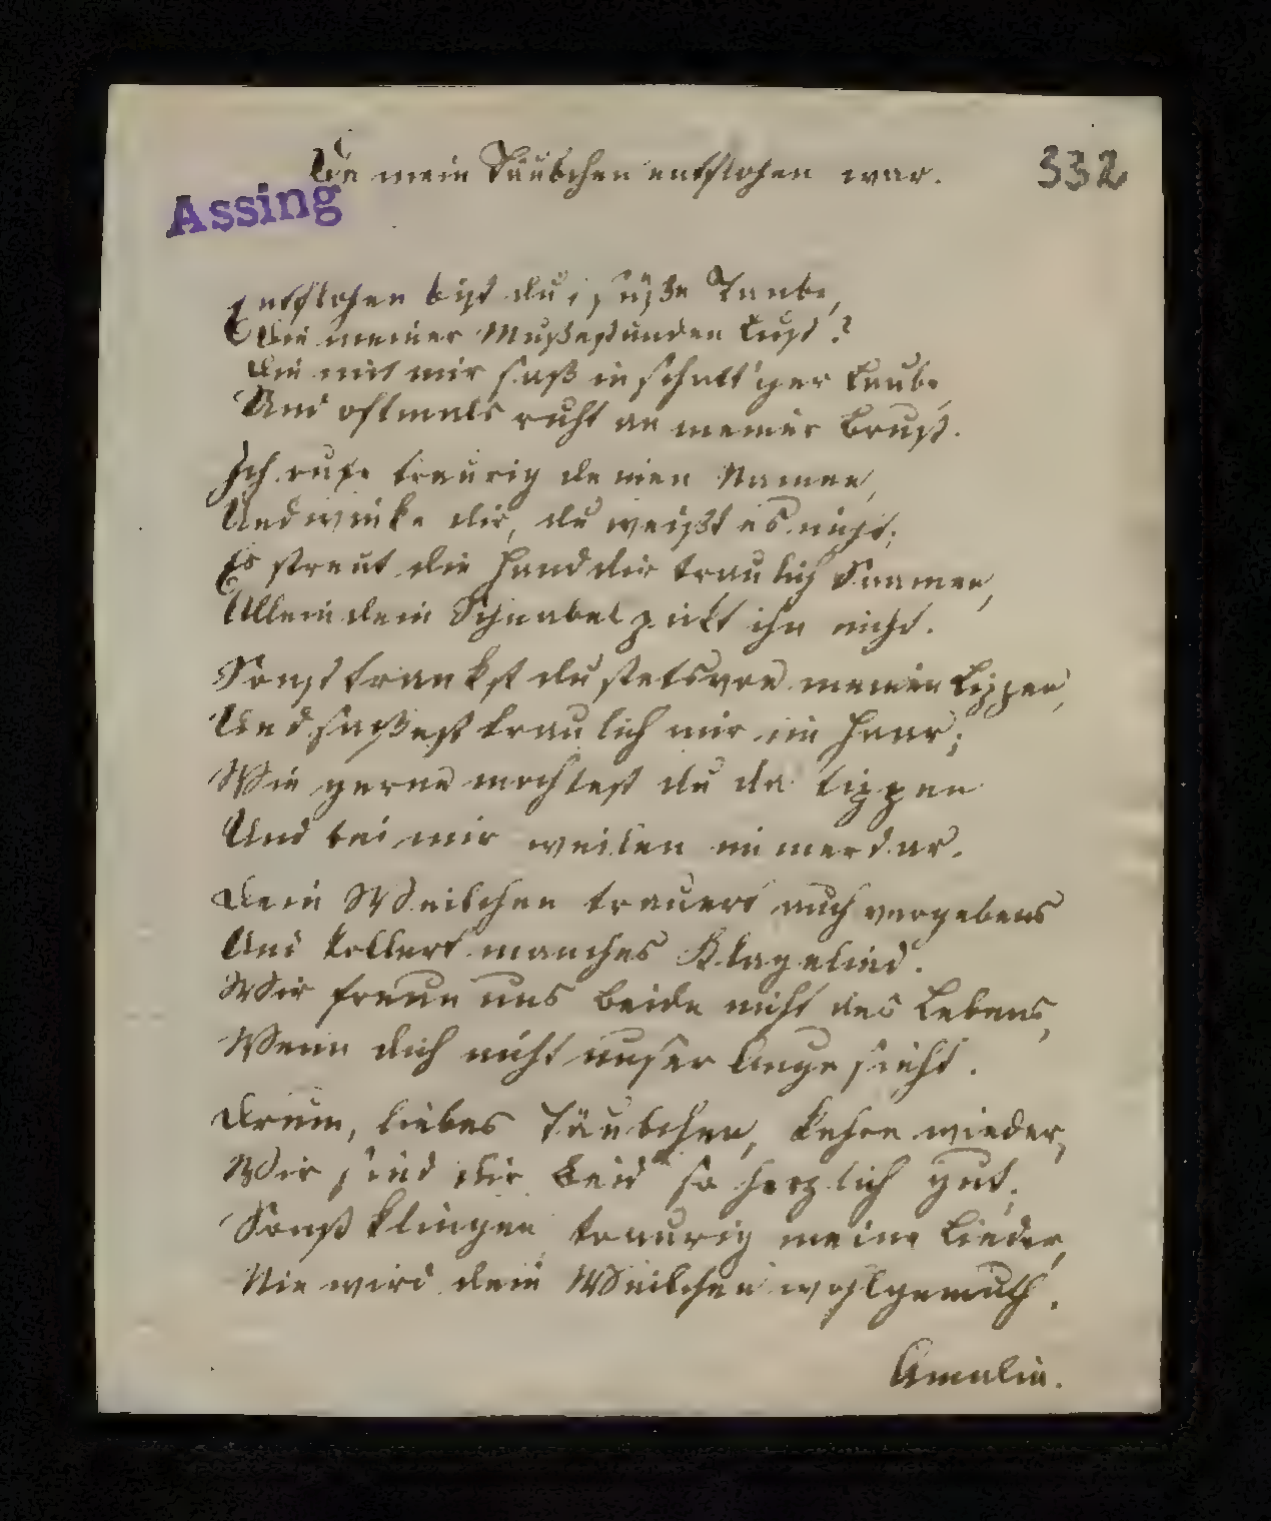 Da mein Täubchen entflohen war.
332
Assing
Entflohen bist du, süße Taube,
Die meiner Mußestunden Lust?
Die mit mir saß in schatt'ger Laube,
Und oftmals ruht an meiner Brust.
Ich rufe traurig deinen Namen,
Und winke dir, du weißt es nicht;
Es streut die Hand dir traulich Saamen,
Allein dein Schnabel pickt ihn nicht.
Sonst trankst du stets von meinen Lippen,
Und saßest traulich mir im Haar;
Wie gerne mochtest du da tippen
Und bei mir weilen immerdar.
Dein Weibchen trauert auch vergebens
Und kollert manches Klagelied.
Wir freun uns beide nicht des Lebens,
Wenn dich nicht unser Auge sieht.
Drum, liebes Täubchen, kehre wieder,
Wir sind dir beid so herzlich gut,
Sonst klingen traurig meine Lieder,
Nie wird dein Weibchen wohlgemuth.
Amalia.